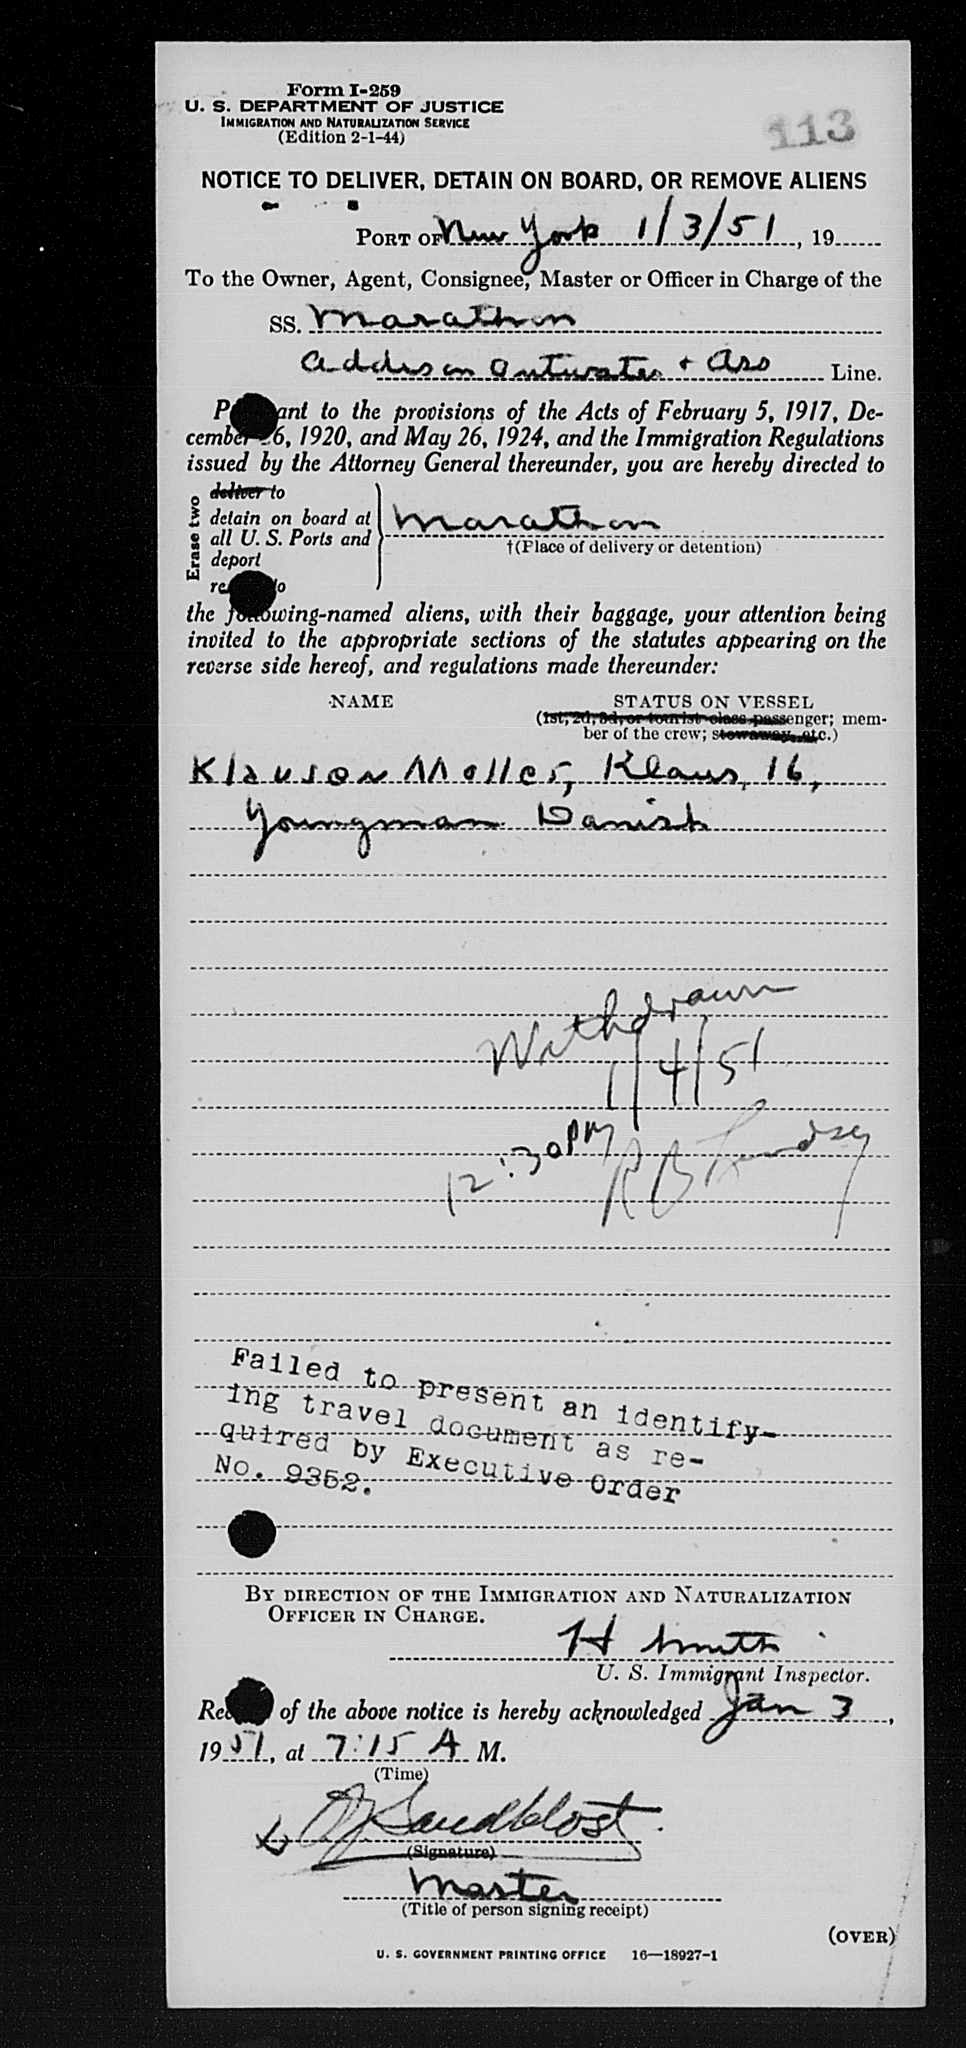 Form I-259
U. S. DEPARTMENT OF JUSTICE
IMMIGRATION AND NATURALIZATION SERVICE
(Edition 2-1-44)
113
NOTICE TO DELIVER, DETAIN ON BOARD, OR REMOVE ALIENS
PORT OF New York 1/3/51, 19
To the Owner, Agent, Consignee, Master or Officer in Charge of the
SS. Marathon
Addison Outwater + Aso Line.
P ant to the provisions of the Acts of February 5, 1917, De-
cember 26, 1920, and May 26, 1924, and the Immigration Regulations
issued by the Attorney General thereunder, you are hereby directed to
Erase two
deliver to
detain on board at
all U. S. Ports and
deport
re to
Marathon
†(Place of delivery or detention)
the following-named aliens, with their baggage, your attention being
invited to the appropriate sections of the statutes appearing on the
reverse side hereof, and regulations made thereunder:
NAME STATUS ON VESSEL
(1st, 2d, 3d, or tourist class passenger; mem-
ber of the crew; stowaway, etc.)
Klauson Moller, Klaus, 16,
Youngman Danish
Withdrawn
1/4/51
12:30 PM R B Lindsey
Failed to present an identify-
ing travel document as re-
quired by Executive Order
No. 9352.
BY DIRECTION OF THE IMMIGRATION AND NATURALIZATION
OFFICER IN CHARGE.
H Smith
U. S. Immigrant Inspector.
Rec of the above notice is hereby acknowledged Jan 3,
1951, at 7:15 A M.
(Time)
Sandblost
(Signature)
Master
(Title of person signing receipt)
(OVER)
U. S. GOVERNMENT PRINTING OFFICE 16—18927-1